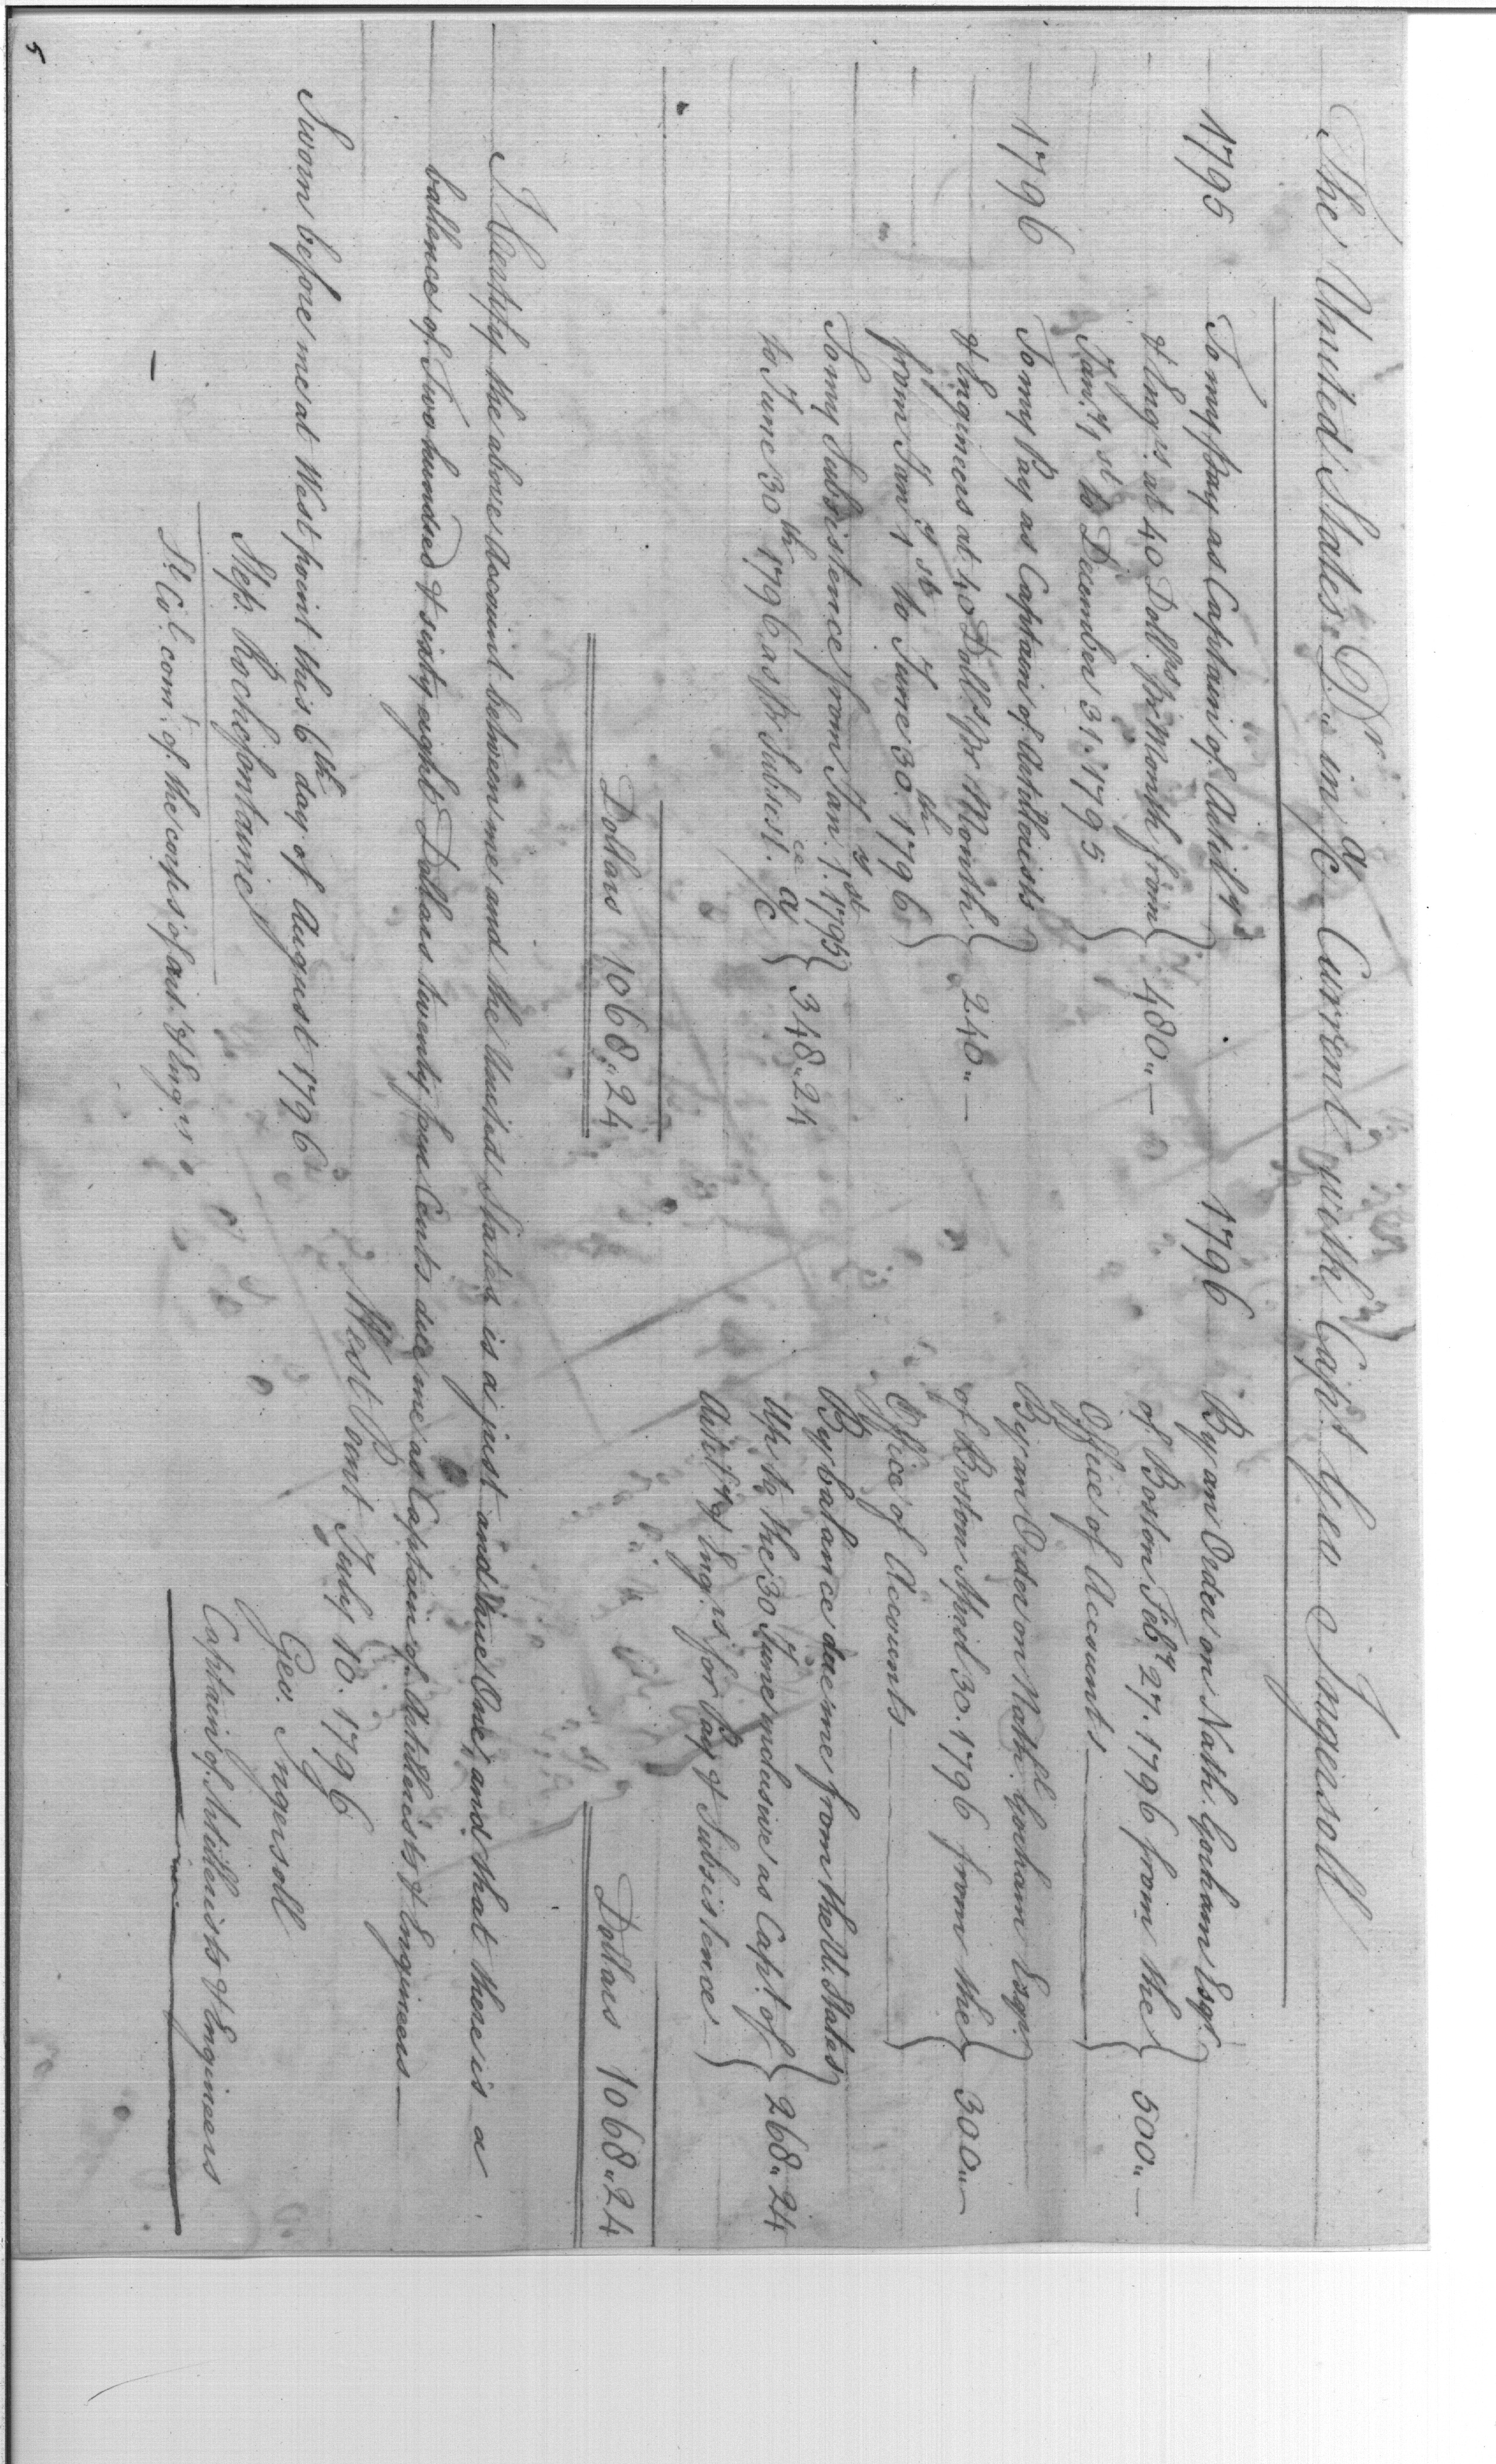 The United States Dr. in a/c Current with Capt. Geo Ingersoll
1795
To my Pay as Captain of Artily
& Engrs. at 40 Dolls. pr. Month from
Jany. 1st to December 31. 1795
480.. —
1796
To my Pay as Captain of Artillerists
& Engineers at 40 Dolls. pr Month
from Jany 1st to June 30th. 1796
240.. —
To my Subsistence from Jany. 1st. 1795
to June 30th 1796 as pr Subsist.ce a/c
348..24
Dollars 1068..24
1796
By an Order on Nath. Gorham Esqr.
of Boston Feby 27. 1796 from the
Office of Accounts —
500.. —
By an Order on Nathl. Gorham Esqr.
of Boston April 30. 1796 from the
Office of Accounts —
300.. —
By balance due me from the U. States
up to the 30 June inclusive as Capt. of
Artily & Engrs. for Pay & Subsistence
268..24
Dollars 1068..24
I Certify the above Account between me and the United States is a just and true One, and that there is a
ballence of Two hundred & sixty eight Dollars twenty four Cents due me as Captain of Artillerists & Engineers —
West Point July 10. 1796
Geo. Ingersoll
Captain of Artillerists & Engineers
Sworn before me at West point this 6th day of August 1796
Steph. Rochefontaine
Lt. Col. comt. of the corps of art. & Engrs
5